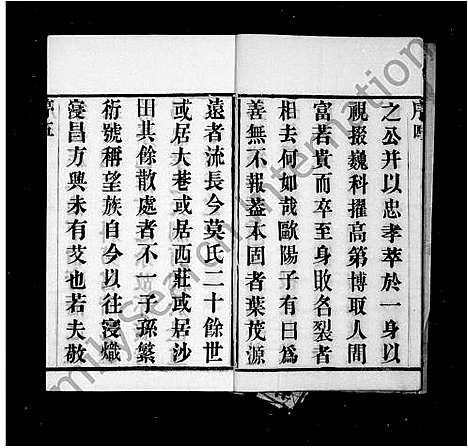 序四
之公幷以忠孝萃於一身以
視掇巍科擢高第博取人間
富若貴而卒至身敗名裂者
相去何如哉歐陽子有曰爲
善無不報葢本固者葉茂源
遠者流長今莫氏二十餘世
或居大巷或居西莊或居沙
田其餘散處者不一子孫繁
衍號稱望族自今以往寖熾
寖昌方興未有艾也若夫敬
序五